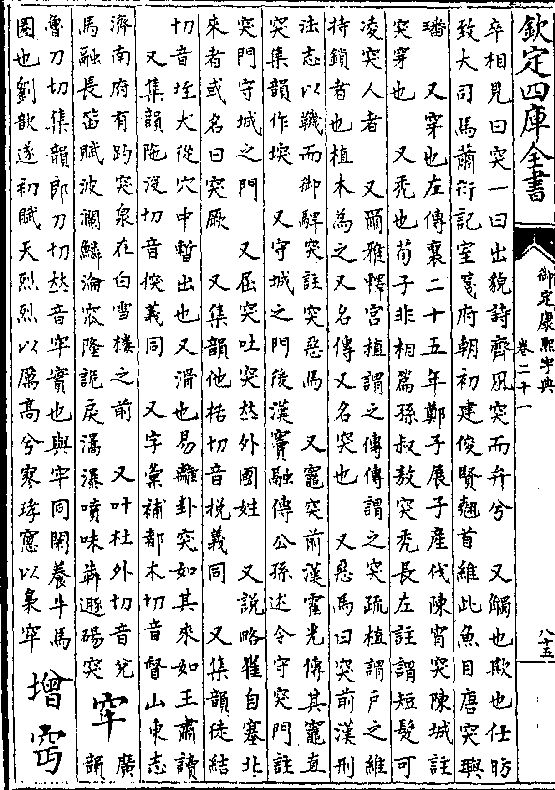 欽定四庫全書
御定康熙字典
卷二十一
八十五
卒相見曰突一曰出貌詩齊風突而弁兮　又觸也欺也任昉
致大司馬蕭衍記室箋府朝初建俊賢翹首維此魚目唐突璵
璠　又穿也左傳襄二十五年鄭子展子産伐陳宵突陳城註
突穿也　又禿也荀子非相篇孫叔敖突禿長左註謂短髮可
凌突人者　又爾雅釋宮植謂之傳傳謂之突疏植謂戶之維
持鎖者也植木為之又名傳又名突也　又惡馬曰突前漢刑
法志以鞿而御駻突註突惡馬　又竈突前漢霍光傳其竈直
突集韻作堗　又守城之門後漢竇融傳公孫述令守突門註
突門守城之門　又屈突吐突㳫外國姓　又說略權自塞北
來者或名曰突厥　又集韻他栝切音梲義同　又集韻徒結
切音垤犬從穴中暫出也又滑也易離卦突如其來如王肅讀
　又集韻陁沒切音悷義同　又字彙補都木切音督山東志
濟南府有趵突泉在白雪樓之前　又叶杜外切音兌　廣
馬融長笛賦波瀾鱗淪窊隆詭戾㵧瀑噴沫犇遯碭突　牢　韻
魯刀切集韻郎刀切𠀤音牢實也與牢同閑養牛馬
圈也劉歆遂初賦天烈烈以厲高兮寥㻯窻以梟窂　增　寍